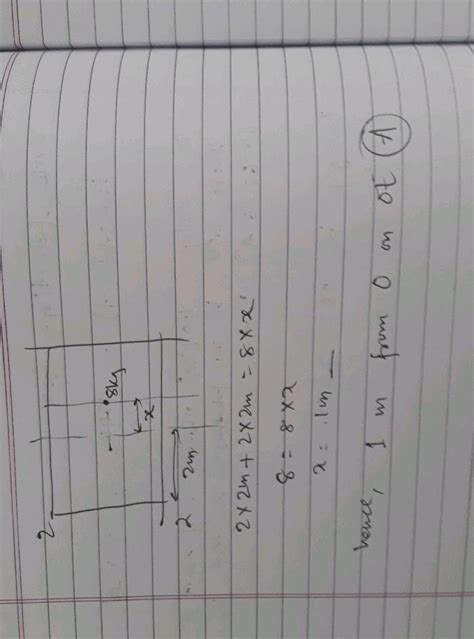 2
8kg
x
2
2m
2×2m + 2×2m = 8×x
8 = 8×x
x = 1m
hence, 1 m from O on OE (A)